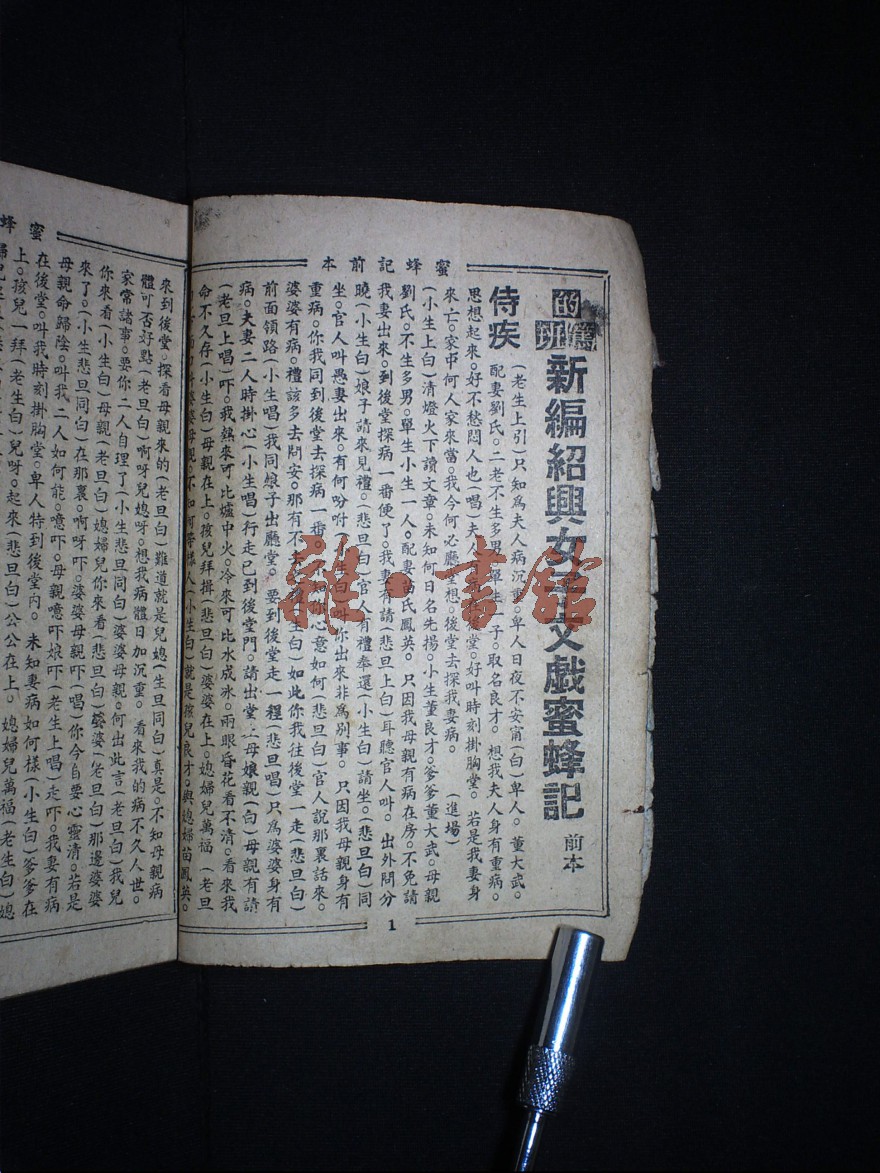 蜜蜂記前本
的篤班
新編紹興女子文戲蜜蜂記 前本
侍疾
(老生上引)只知為夫人病沉重。卑人日夜不安甯(白)卑人。董大武。
配妻劉氏。二老不生多男。單生一子。取名良才。想我夫人身有重病。
思想起來。好不愁悶人也(唱)夫人後堂。好叫時刻掛胸堂。若是我妻身
來亡。家中何人家來當。我今何必廳堂想。後堂去探我妻病。(進場)
(小生上白)清燈火下讀文章。未知何日名先揚。小生董良才。爹爹董大武。母親
劉氏。不生多男。單生小生一人。配妻苗氏鳳英。只因我母親有病在房。不免請
我妻出來。到後堂探病一番便了。我妻有請(悲旦上白)耳聽官人叫。出外問分
曉(小生白)娘子請來見禮。(悲旦白)官人有禮奉還(小生白)請坐。(悲旦白)同
坐。官人叫愚妻出來。有何吩咐(小生白)叫你出來非為別事。只因我母親身有
重病。你我同到後堂去探病一番。心意如何(悲旦白)官人說那裏話來。
婆婆有病。禮該多去問安。那有不去之理(小生白)如此你我往後堂一走(悲旦白)
前面領路(小生唱)我同娘子出廳堂。要到後堂走一程(悲旦唱)只為婆婆身有
病。夫妻二人時掛心(小生唱)行走已到後堂門。請出堂上母娘親(白)母親有請
(老旦上唱)吓。我熱來可比爐中火。冷來可比水成冰。兩眼昏花看不清。看來我
命不久存(小生白)母親在上。孩兒拜揖(悲旦白)婆婆在上。媳婦兒萬福(老旦
婆婆母親。不知何等樣人(小生白)就是孩兒良才。與媳婦苗鳳英。
1
蜜蜂
來到後堂。探看母親來的(老旦白)難道就是兒媳(生旦同白)真是。不知母親病
體可否好點(老旦白)啊呀兒媳呀。想我病體日加沉重。看來我的病不久人世。
家常諸事。要你二人自理了(小生悲旦同白)婆婆母親。何出此言(老旦白)我兒
你來看(小生白)母親(老旦白)媳婦兒你來看(悲旦白)婆婆(老旦白)那邊婆婆
來了。(小生悲旦同白)在那裏。啊呀吓。婆婆母親吓(唱)你今自要心靈清。若是
母親命歸陰。叫我二人如何能。噫吓。母親噫吓娘吓(老生上唱)走吓。我妻有病
在後堂。叫我時刻掛胸堂。卑人特到後堂內。未知妻病如何樣(小生白)爹爹在
上。孩兒一拜(老生白)兒呀。起來(悲旦白)公公在上。媳婦兒萬福(老生白)媳